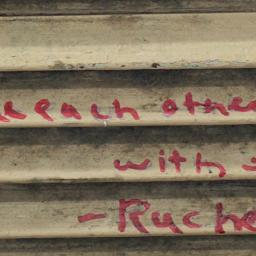 each other
with
- Rache